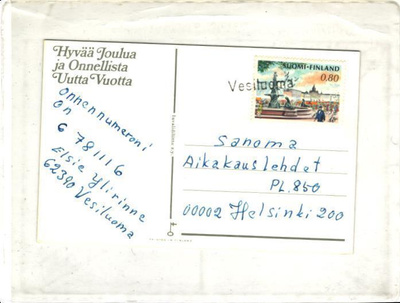 Hyvää Joulua
ja Onnellista
Uutta Vuotta
Onnennumeroni
on
6 781116
Elsie Ylirinne
62390 Vesiluoma
SUOMI-FINLAND
0,80
Vesiluoma
Sanoma
Aikakauslehdet
PL.850
00002 Helsinki 200